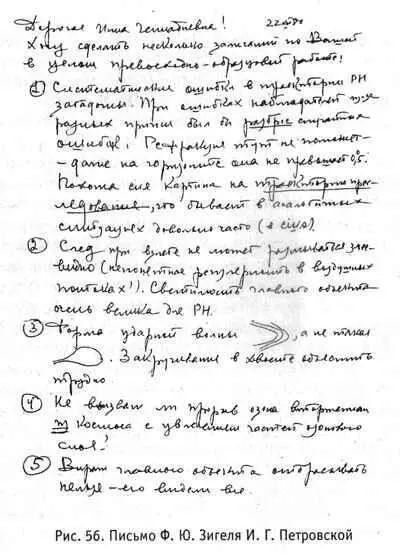 Дорогая Инна Геннадиевна!
Хочу сделать несколько замечаний по Вашей
в целом превосходно-образцовой работе!
① Систематические ошибки в траектории РН
загадочны. При ошибках наблюдателей
разных причин был бы разброс
ошибок! Рефракция тут не поможет-
- даже на горизонте она не превышает 0,5.
Похожа сия картина на траекторию прес-
ледования, это бывает в аналогичных
ситуациях довольно часто (в США).
② След при взлете не может
видно (непонятная регулярность в воздушных
потоках!). Светимость главного объекта
очень велика для РН.
③ Форма ударной волны , а не такая
. Закручивание в хвосте объяснить
трудно
④ Не вызван ли прорыв озона вторжением
из Космоса с увлечением частей озонового
слоя?
⑤ главного объекта отбрасывать
нельзя – его видели все.
Рис. 56. Письмо Ф. Ю. Зигеля И. Г. Петровской